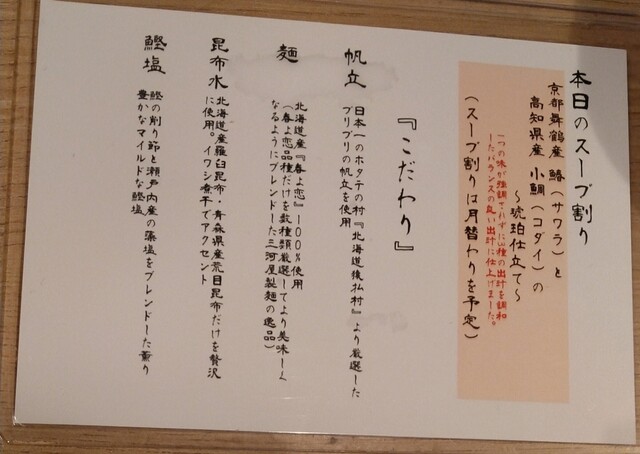 本日のスープ割り
京都舞鶴産 鰆(サワラ)と
高知県産 小鯛(コダイ)の
～琥珀仕立て～
一つの味が強調されずに2種の出汁を調和
したバランスの良い出汁に仕上げました。
(スープ割りは月替わりを予定)
『こだわり』
帆立
日本一のホタテの村『北海道猿払村』より厳選した
プリプリの帆立を使用
麺
北海道産『春よ恋』100%使用
(春よ恋品種だけを数種類厳選してより美味しく
なるようにブレンドした三河屋製麺の逸品)
昆布水
北海道産羅臼昆布・青森県産荒目昆布だけを贅沢
に使用。イワシ煮干でアクセント
鰹塩
鰹の削り節と瀬戸内産の藻塩をブレンドした薫り
豊かなマイルドな鰹塩